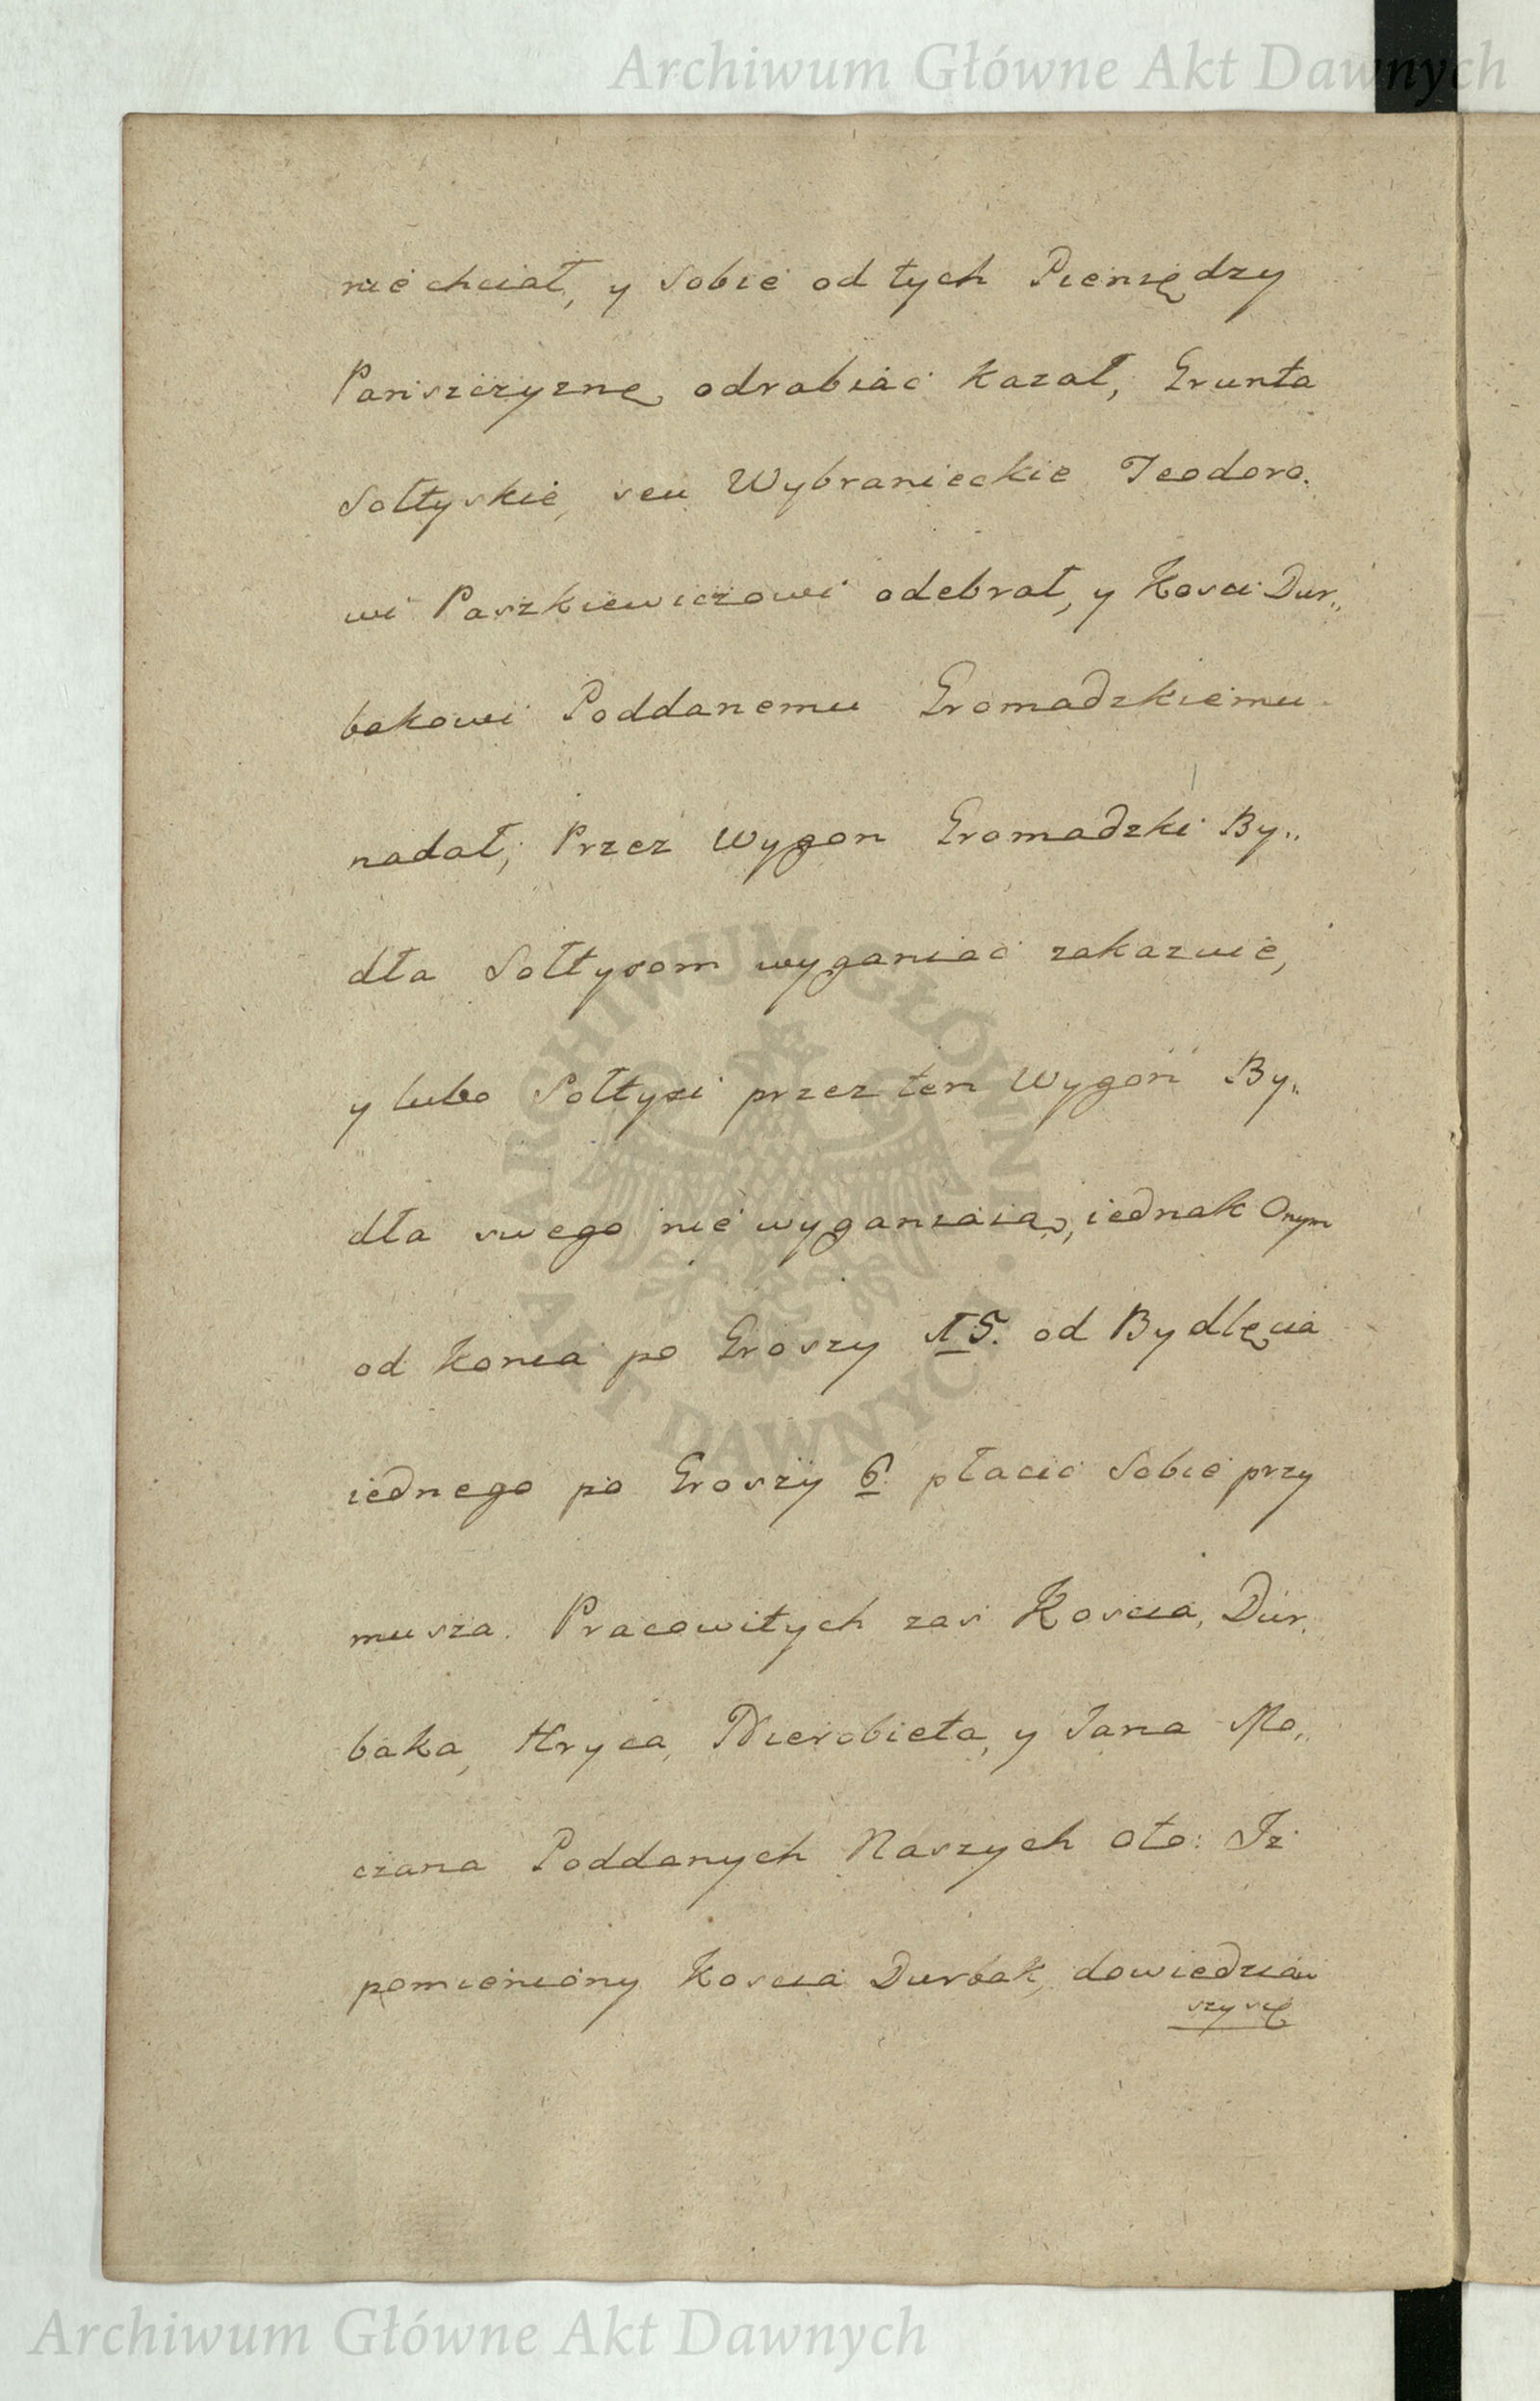 Archiwum Główne Akt Dawnych
nie chciał, y Sobie od tych Pieniędzy
Pańszczyznę odrabiać kazał, Grunta
Sołtyskie, seu Wybranieckie Teodoro.
wi Paszkiewiczowi odebrał, y Kosci Dur„
bakowi Poddanemu Gromadzkiemu
nadał; Przez Wygon Gromadzki By„
dła Sołtysom wyganiać zakazuie,
y lubo Sołtysi przez ten Wygon By„
dła swego nie wyganiaią, iednak Onym
od Konia po Groszy 15. od Bydlęcia
iednego po Groszy 6. płacić Sobie przy
musza. Pracowitych zaś Koscia, Dur.
baka, Hryca, Nierobieta, y Jana Mo„
czana Poddanych Naszych oto: Iż
pomieniony Koscia Durbak, dowiedziaw
szy się
ARCHIWUM GŁÓWNE AKT DAWNYCH
Archiwum Główne Akt Dawnych